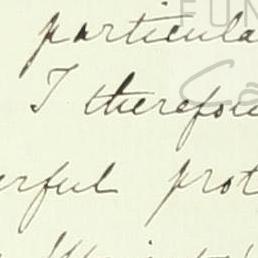 particula
I therefore
erful prot